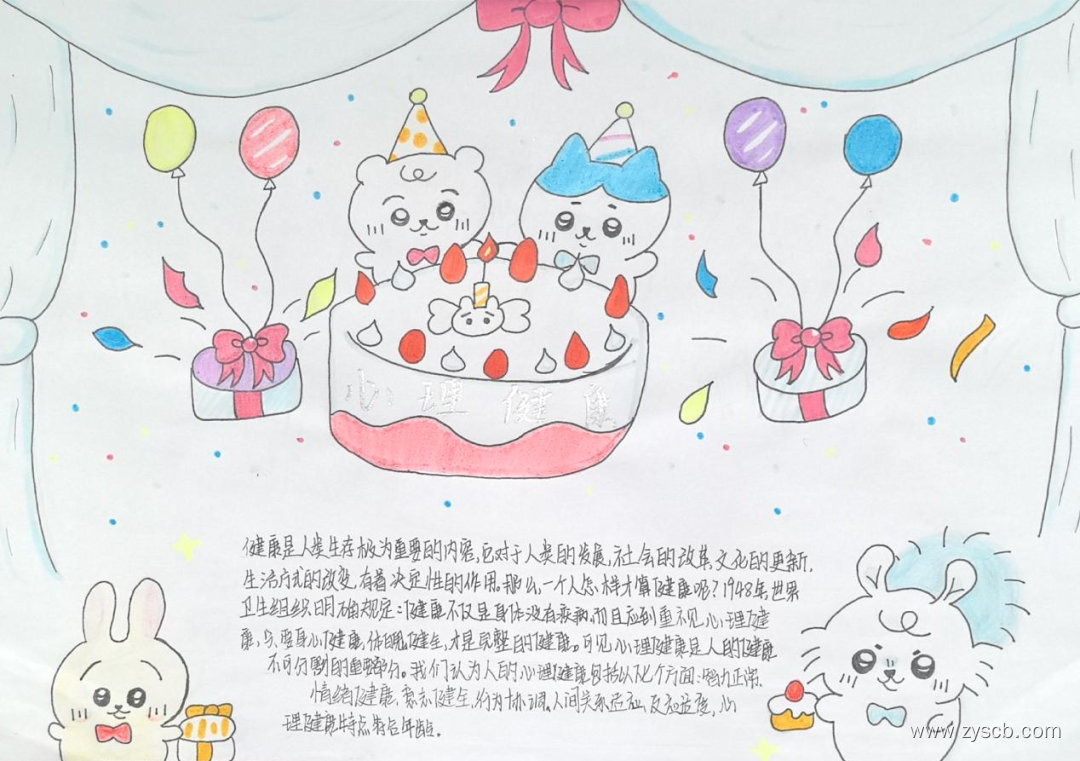 心理健康
健康是人类生存极为重要的内容,它对于人类的发展,社会的改革,文化的更新,
生活方式的改变,有着决定性的作用。那么,一个人怎样才算健康呢?1948年世界
卫生组织明确规定:健康不仅是身体没有疾病,而且应到重视心理健
康,只要身心健康,体魄健全,才是完整的健康。可见心理健康是人的健康
不可分割的重要部分。我们认为人的心理健康包括以下七个方面:智力正常,
情绪健康,意志健全,行为协调,人间关系适应,反应适度,心
理健康特点符合年龄。
www.zyscb.com